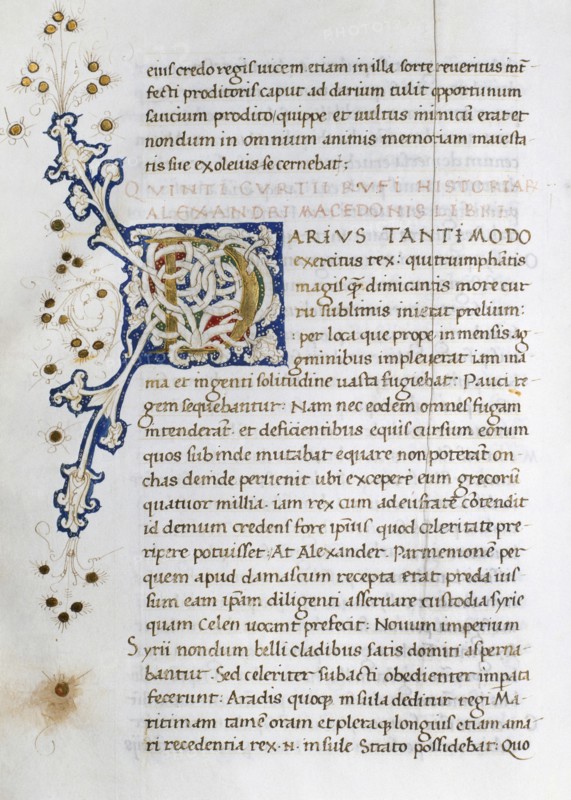 eius credo regis uicem etiam in illa sorte reueritus int̄-
fecti proditoris caput ad darium tulit opportunum
saucium prodito quippe et uultus inimicū erat et
nondum in omnium animis memoriam maiesta-
tis sue exoleuisse cernebat:
QVINTI CVRTII RVFI HISTORIAR
ALEXANDRI MACEDONIS LIB IIII
DARIVS TANTI MODO
exercitus rex: qui triumphātis
magis q̄ dimicantis more cur
ru sublimis inierat prelium:
per loca que prope inmensis ag
gminibus impleuerat iam ina
nia et ingenti solitudine uasta fugiebat: Pauci re-
gem sequebantur. Nam nec eodem omnes fugam
intenderāt. et deficientibus equis cursum eorum
quos subinde mutabat equare non poterāt on-
chas deinde peruenit ubi excepere eum grecorū
quatuor millia. iam rex cum ad eufratē cōtendit
id demum credens fore ipsius quod celeritate pre-
ripere potuisset. At Alexander. Parmenionē per
quem apud damascum recepta erat preda ius
sum eam ip̄am diligenti asseruare custodia syrie
quam Celen uocant prefecit: Nouum imperium
Syrii nondum belli cladibus satis domiti asperna-
bantur. Sed celeriter subacti obedienter impata
fecerunt: Aradis quoq; insula deditur regi Ma-
ritimam tamē oram et pleraq; longius etiam a ma-
ri recedentia rex .N. insule Strato possidebat: Quo